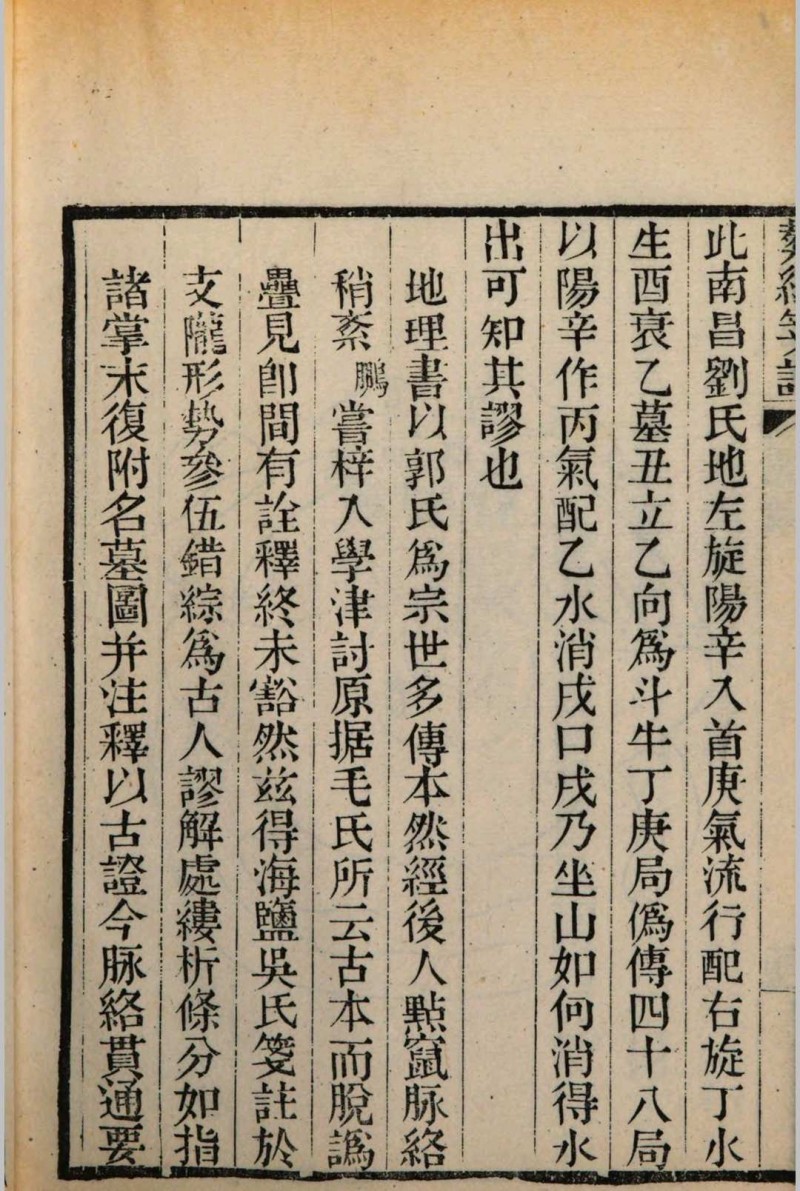 葬經箋註
此南昌劉氏地左旋陽辛入首庚氣流行配右旋丁水
生酉衰乙墓丑立乙向爲斗牛丁庚局僞傳四十八局
以陽辛作丙氣配乙水消戌口戌乃坐山如何消得水
出可知其謬也
地理書以郭氏爲宗世多傳本然經後人㸃竄脉絡
稍紊鵬嘗梓入學津討原据毛氏所云古本而脫譌
疊見卽間有詮釋終未豁然茲得海鹽吳氏箋註於
支隴形勢參伍錯綜爲古人謬解處縷析條分如指
諸掌末復附名墓圖并注釋以古證今脉絡貫通要